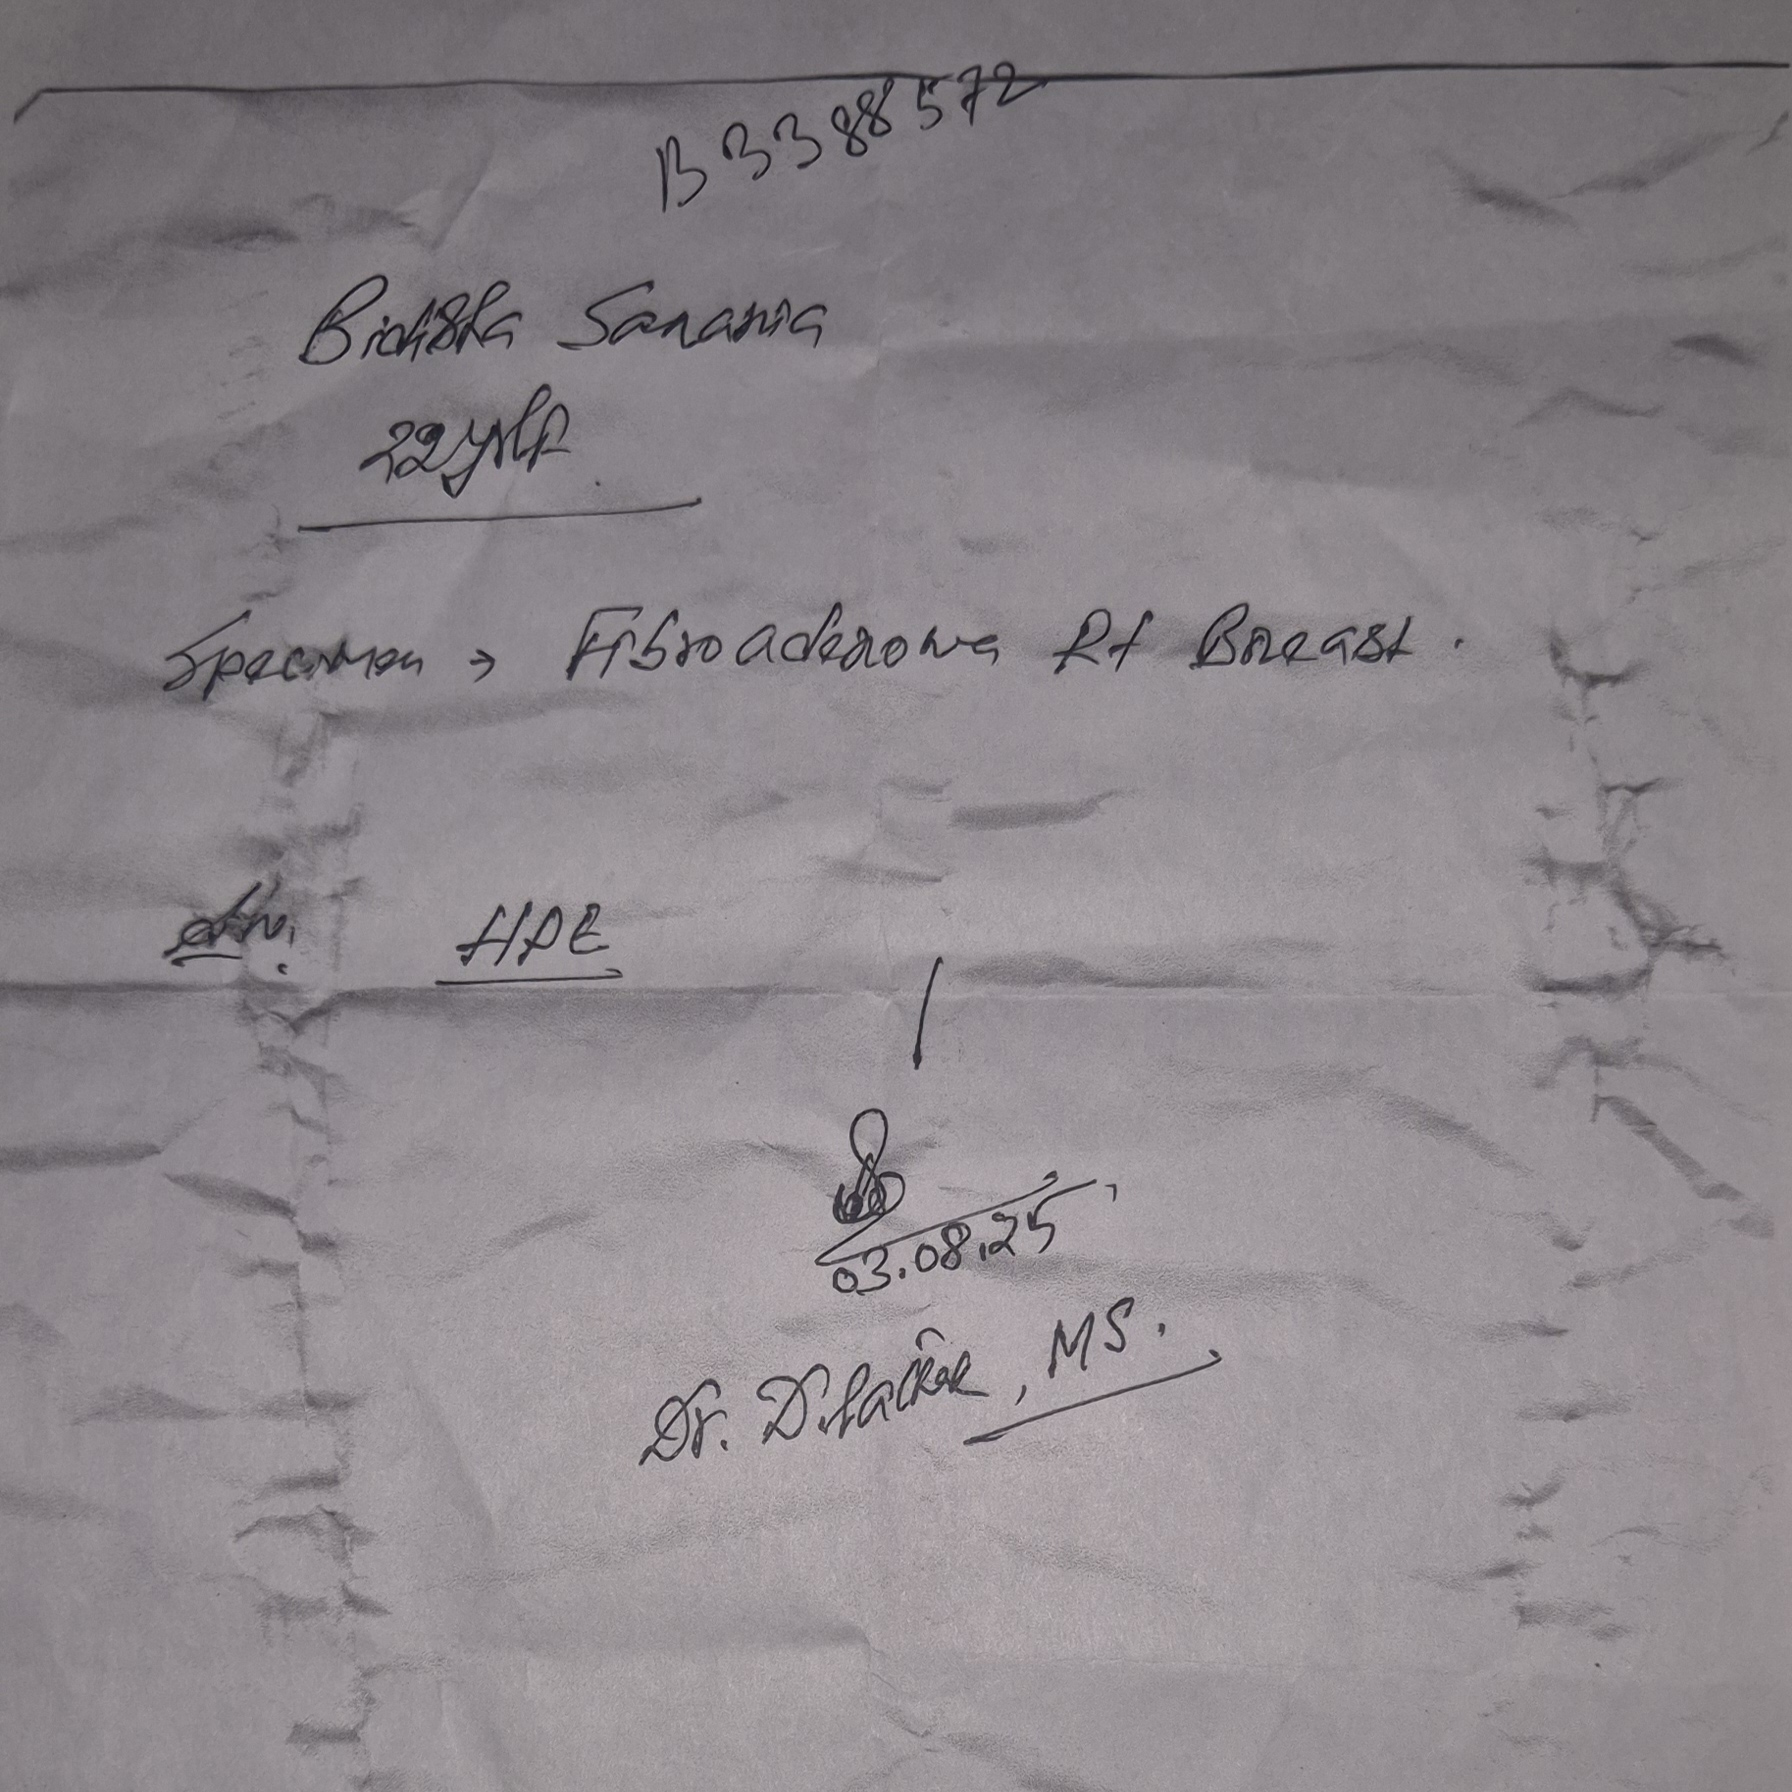 B3388572
Bidisha Sanania
22y/F
Specimen → Fibroadenoma Rt Breast.
Adv. HPE
03.08.25
Dr. D. , MS.